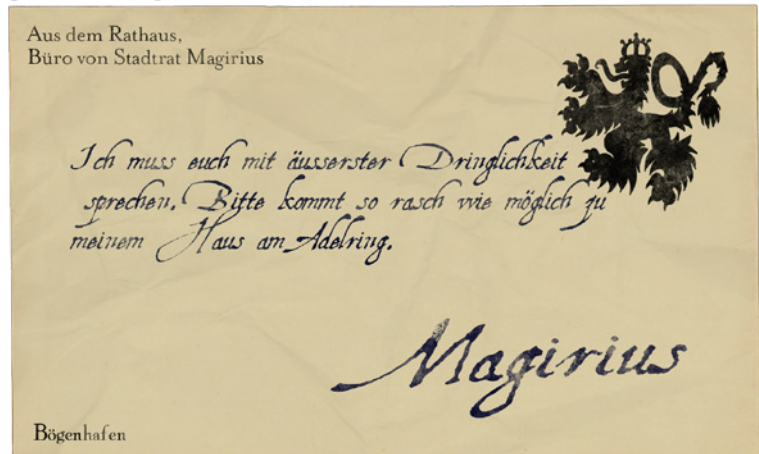 Aus dem Rathaus,
Büro von Stadtrat Magirius
Ich muss euch mit äusserster Dringlichkeit
sprechen. Bitte kommt so rasch wie möglich zu
meinem Haus am Adelring.
Magirius
Bögenhafen